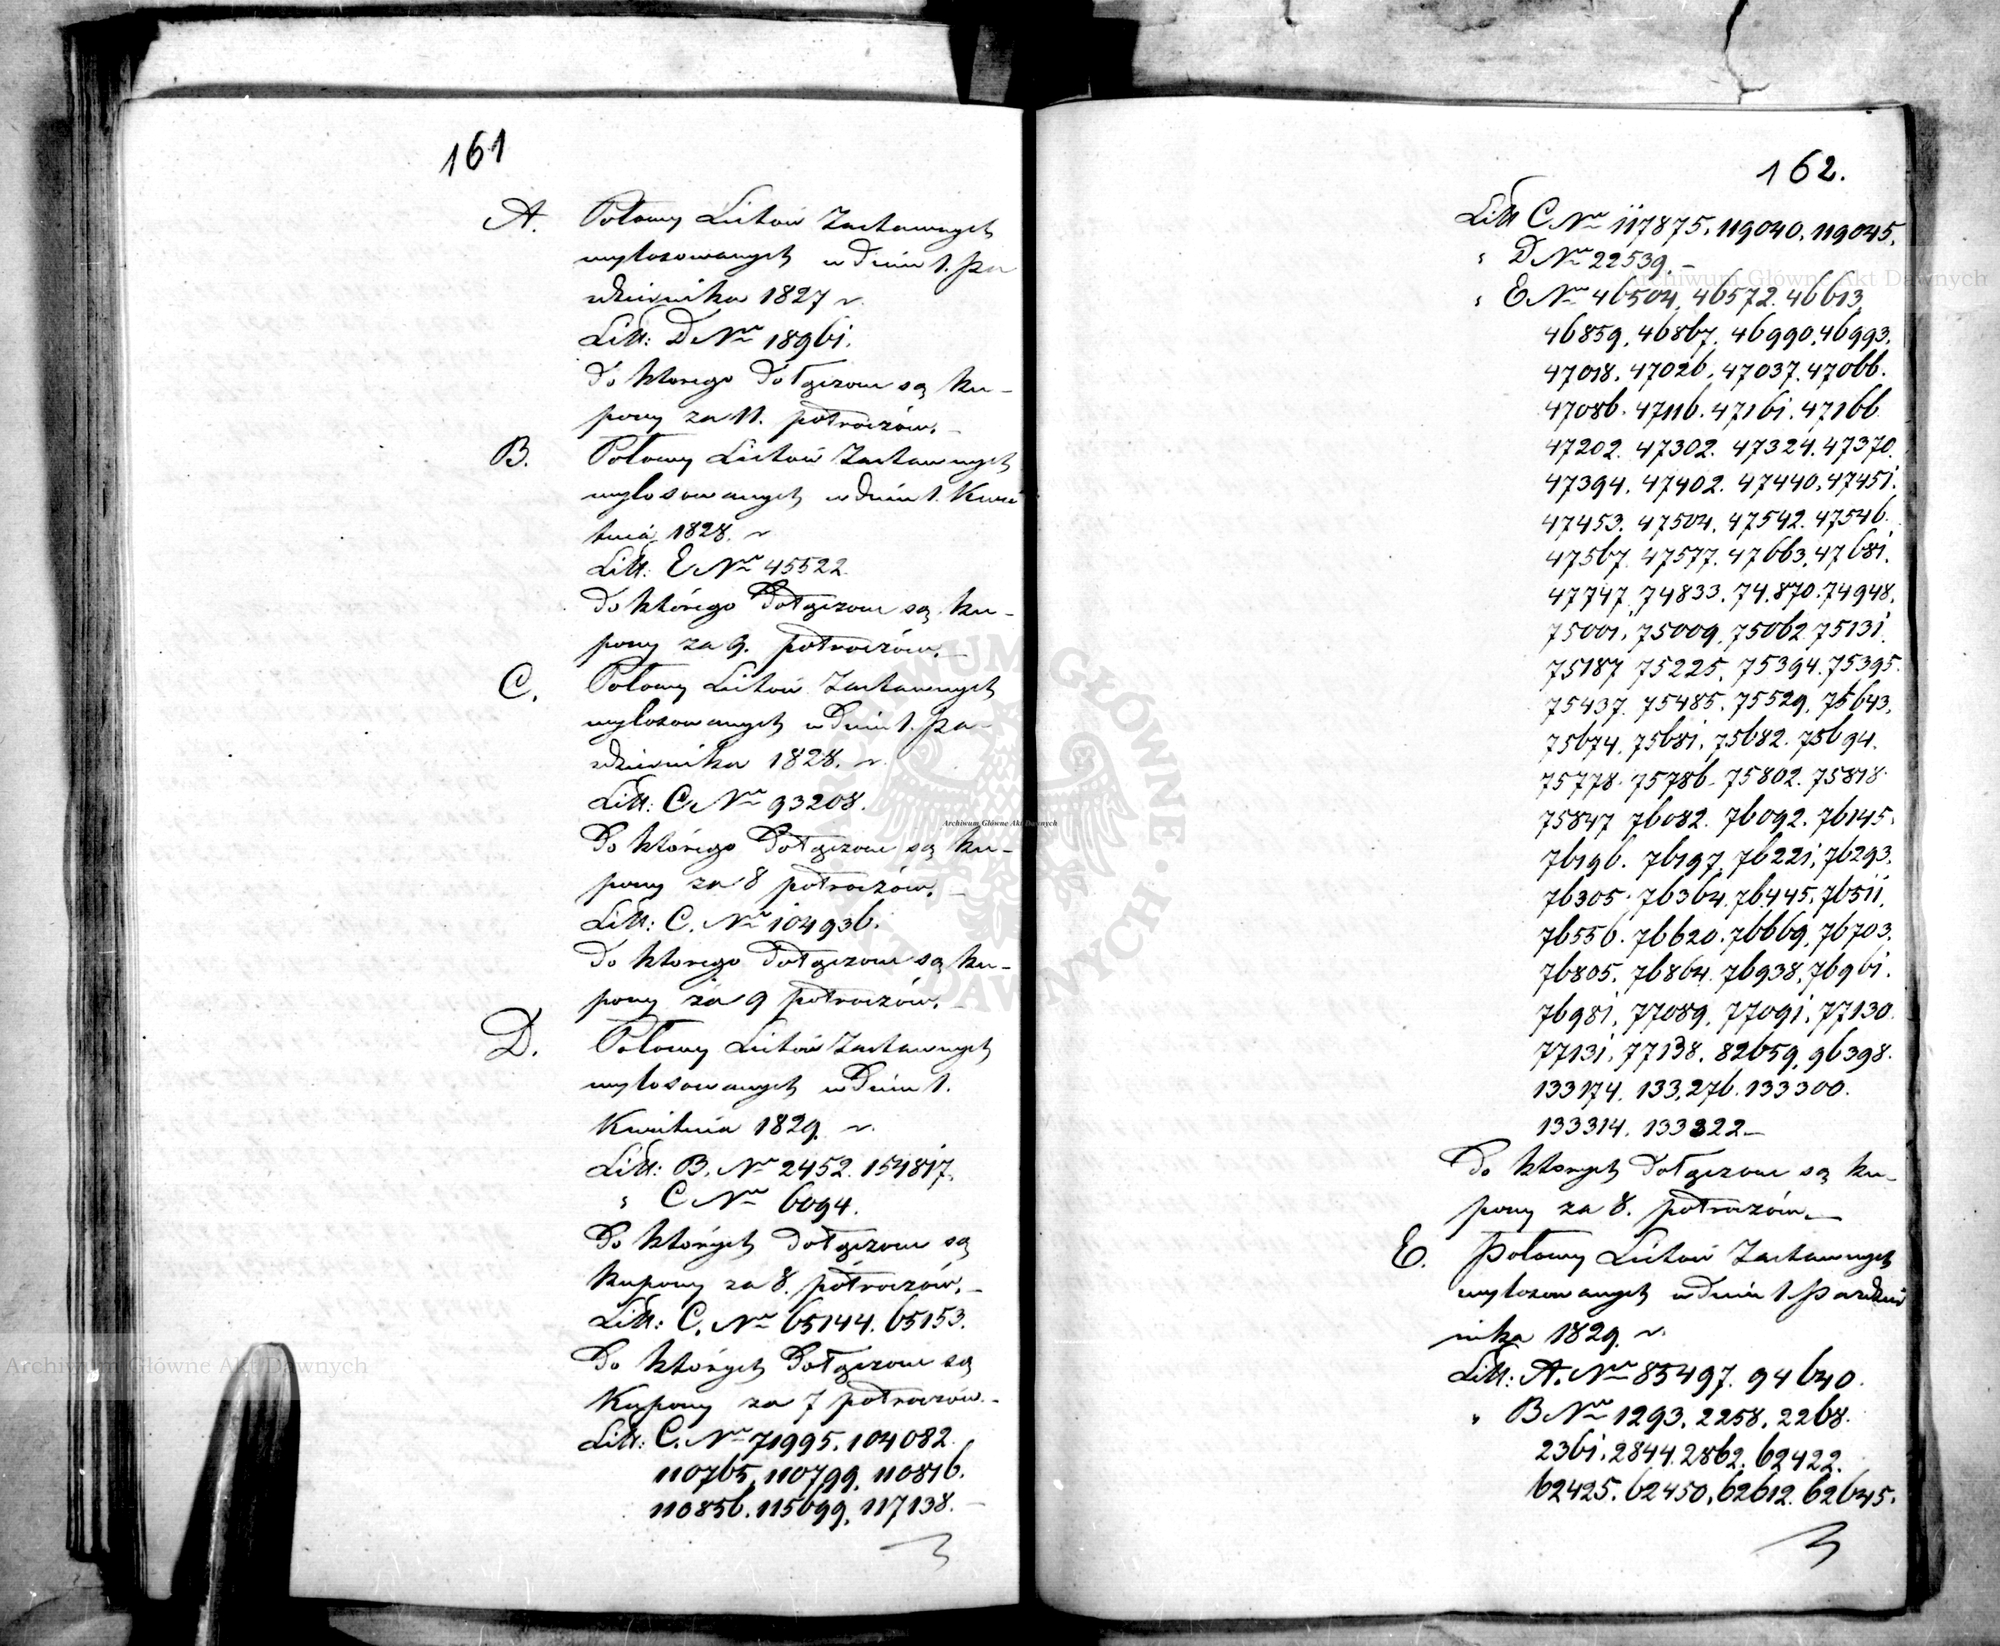 161
A. Połowy Listów Zastawnych
wylosowanych w dniu 1. Pa
ździernika 1827 r.
Litt: D Nro 18961.
do którego dołączone są ku-
pony za 11. półroczów. -
B. Połowy Listów Zastawnych
wylosowanych w dniu 1. Kwie
tnia 1828. r
Litt: E Nro 45522.
do którego dołączone są ku-
pony za 9. półroczów. -
C. Połowy Listów Zastawnych
wylosowanych w dniu 1. Pa-
ździernika 1828. r.
Litt: C Nro 93208.
do którego dołączone są ku-
pony za 8 półroczów. -
Litt: C. Nro 104936.
do którego dołączone są ku-
pony za 9 półroczów. -
D. Połowy Listów Zastawnych
wylosowanych w dniu 1.
Kwietnia 1829. r.
Litt: B. Nro 2452. 154817.
" C Nro 6094.
do których dołączone są
kupony za 8. półroczów. -
Litt: C. Nro 65144. 65153.
do których dołączone są
Kupony za 7 półroczów. -
Litt: C. Nro 71995. 104082.
110765. 110799. 110816.
110856. 115699. 117138. -
162.
Litt C Nro 117875. 119040. 119045.
" D Nro 22539. -
" E Nro 46504. 46572. 46613.
46859. 46867. 46990. 46993.
47018. 47026. 47037. 47066.
47086. 47116. 47161. 47166.
47202. 47302. 47324. 47370.
47394. 47402. 47440. 47451.
47453. 47504. 47542. 47546.
47567. 47577. 47663. 47681.
47747. 74833. 74.870. 74948.
75001. 75009. 75062. 75131.
75187 75225. 75394. 75395.
75437. 75485. 75529. 75643.
75674. 75681. 75682. 75694.
75778. 75786. 75802. 75818.
75847 76082. 76092. 76145.
76196. 76197. 76221. 76293.
76305. 76364. 76445. 76511.
76556. 76620. 76669. 76703.
76805. 76864. 76938. 76961.
76981. 77089. 77091. 77130.
77131. 77138. 82659. 96398.
133174. 133.276. 133300.
133314. 133322. -
do których dołączone są ku-
pony za 8. półroczów. -
E. Połowy Listów Zastawnych
wylosowanych w dniu 1 Paździer
nika 1829. r.
Litt: A. Nro 85497. 94640.
" B Nro 1293. 2258. 2268.
2361. 2844. 2862. 62422.
62425. 62450. 62612. 62645.
Archiwum Główne Akt Dawnych
Archiwum Główne Akt Dawnych
Archiwum Główne Akt Dawnych
ARCHIWUM GŁÓWNE · AKT DAWNYCH ·